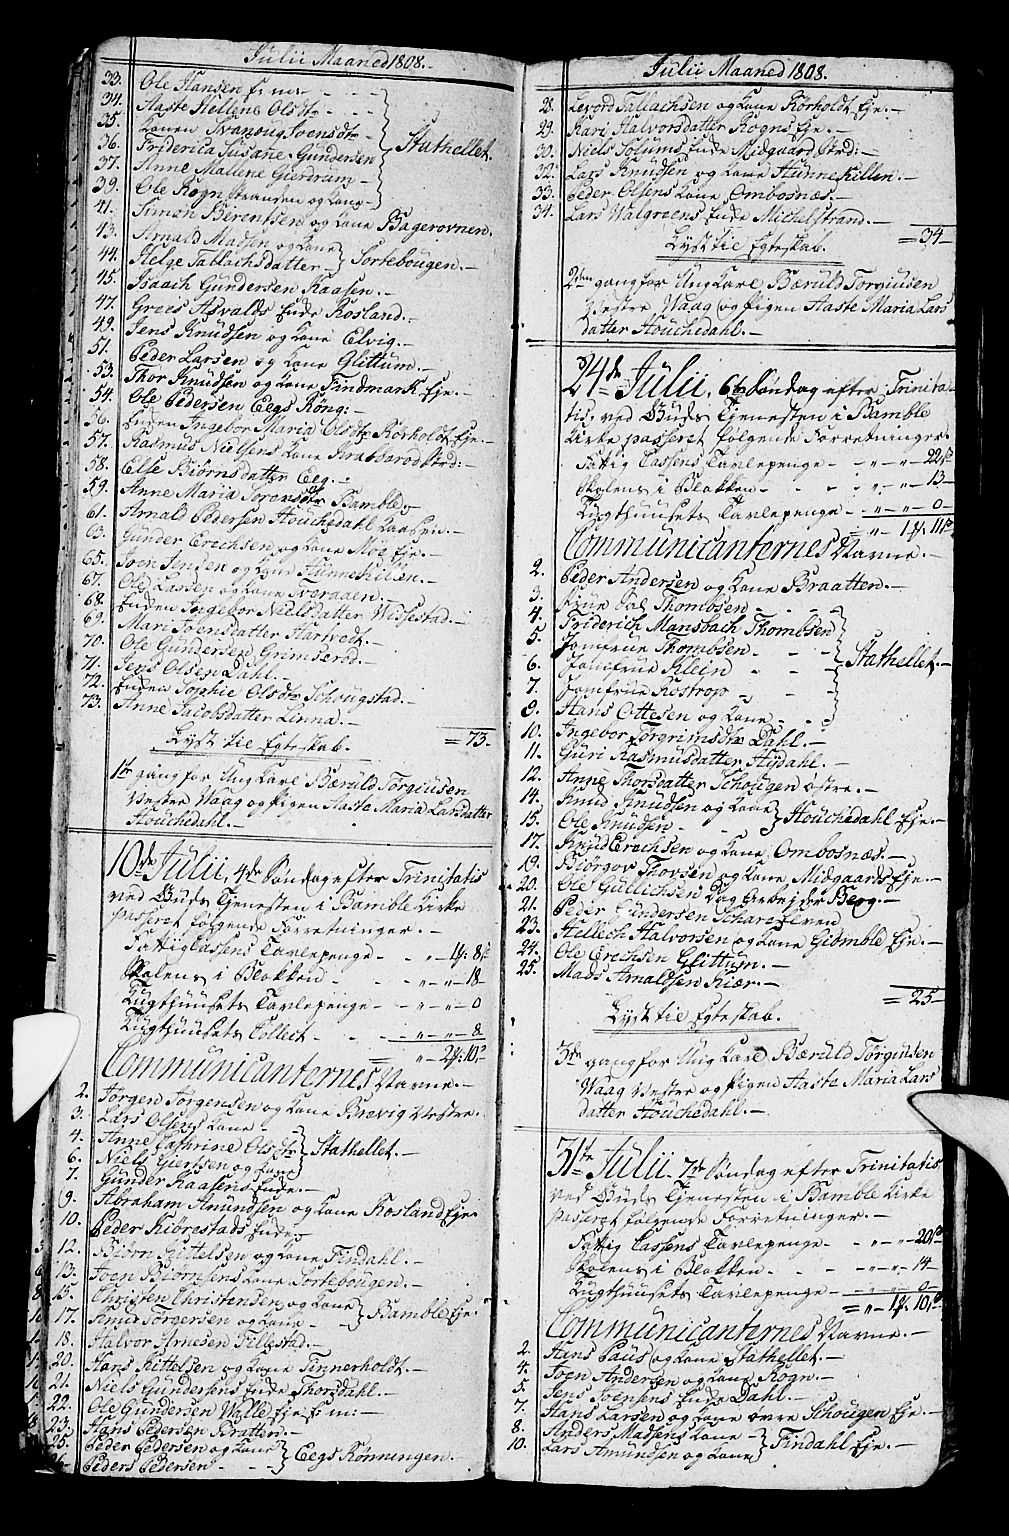 Julii Maaned 1808.
33. Ole Hansen E: m:
34. Aaste Hellene Olsdtr
35. Konen Svanoug Svensdtr
36. Friderica Susane Gundersen
37. Anne Mallene Gierdrum
Stathellet.
39. Ole Rogn Stranden og Kone
41. Simon Berentsen og Kone Bagerovnen.
43. Arnald Madsen og Kone
44. Helge Tallachsdatter
Sortebougen.
45. Isaach Gundersen Kaasen.
47. Grees Asvalds Enke Rosland.
49. Jens Knudsen og Kone Elvig.
51. Peder Larsen og Kone Glittum.
53. Thor Knudsen og Kone Findmark Eje.
54. Ole Pedersen Eegs Röng:
56. Enken Ingebor Maria Olsdtr Rörholdt Eje.
57. Rasmus Nielsens Kone Krabberød Strd:
58. Else Biörnsdatter Eeg.
59. Anne Maria Sörensdtr Bamble
61. Arnald Pedersen Houchedahl Kaasen.
63. Gunder Erichsen og Kone Moe Eje.
65. Joen Jensen og Kone Hünnekillen.
67. Ole Larsen og Kone Tveraaen.
68. Enken Ingebor Nielsdatter Wissestad.
69. Mari Joensdatter Hartvedt.
70. Ole Gundersen Grimseröd.
71. Jens Olsen Dahl.
72. Enken Sophie Olsdtr Schougstad.
73. Anne Jacobsdatter Linna.
= 73.
Lyst til Egteskab.
1te gang for Ung Karl Bærüld Torgiusen
Vestre Waag og Pigen Aaste Maria Larsdatter
Houchedahl.
10de Julii, 4de Söndag efter Trinitatis
ved Guds Tjenesten i Bamble Kirke
passeret fölgende Forretninger.
Fattig Cassens Tavlepenge - " - 1ƒ: 8ß
Skolens i Blokken - " - " - 18
Tugthuusets Tavlepenge - " - " - 0
Tugthuusets Collect - " - " - 8
= " - 2ƒ: 10ß
Communicanternes Navne.
2. Jörgen Jörgensen og Kone Brevig Vestre.
3. Lars Olsens Kone
4. Anne Cathrine Olsdtr
6. Niels Giertsen og Kone
Stathellet.
7. Gunder Kaasens Enke.
9. Abraham Amundsen og Kone Rosland Eje
10. Peder Kiörestads Enke
12. Biörn Kittelsen og Kone Findahl.
13. Joen Biörnsens Kone Sortebougen.
15. Christen Christensen og Kone
17. Knud Torgersen og Kone
Bamble Eje
18. Halvor Arnesen Tillestad.
20. Hans Kittelsen og Kone Finnerholdt.
21. Niels Gundersens Enke Thorsdahl.
22. Ole Gundersen Walle Eje E: m:
23. Hans Pedersen Bratten.
25. Peder Pedersen og Kone
26. Peders Pedersen
Eegs Rönningen.
Julii Maaned 1808.
28. Levord Tallachsen og Kone Rörholdt Eje.
29. Kari Halvorsdatter Rogns Eje.
30. Niels Solums Enke Midgaard Strd:
32. Lars Knudsen og Kone Hünnekillen.
33. Peder Olsens Kone Ombosnæs.
34. Lars Walgreens Enke Michelstrand.
= 34
Lyst til Egteskab.
2den gang for Ung Karl Bærüld Torgiusen
Vestre Waag og Pigen Aaste Maria Lars
datter Houchedahl.
24de Julii, 6te Söndag efter Trinita-
tis ved Guds Tjenesten i Bamble
Kirke passeret fölgende Forretninger
Fattig Cassens Tavlepenge - " - " - 22ß
Skolens i Blokken - " - " - 13
Tugthuusets Tavlepenge - " - " - 0
= " - 1ƒ: 11ß
Communicanternes Navne.
2. Peder Andersen og Kone Braatten.
3. Frue Sal. Thombsen
4. Friderich Mansbach Thombsen
5. Jomfrue Thombsen
6. Jomfrue Klein
7. Jomfrue Rostrop
9. Hans Ottesen og Kone
Stathellet.
10. Ingebor Torgrimsdtr Dahl.
11. Guri Rasmusdatter Hydahl.
12. Anne Thorsdatter Schougen östre.
14. Knud Knudsen og Kone
15. Ole Knudsen
Houchedahl Eje.
17. Knud Erechsen og Kone Ombosnæs.
19. Biörgov Thorsen og Kone Midgaards Eje.
20. Ole Gullichsen Dag Arbejder Berg.
21. Peder Gundersen Scharelven
23. Hellech Halvorsen og Kone Giömble Eje.
24. Ole Erechsen Glittum.
25. Mads Arnaldsen Kiær.
= 25
Lyst til Egteskab.
3de gang for Ung Karl Bærüld Torgiusen
Waag Vestre og Pigen Aaste Maria Lars
datter Houchedahl.
31te Julii. 7de Söndag efter Trinitatis
ved Guds Tjenesten i Bamble Kirke
passeret fölgende Forretninger.
Fattig Cassens Tavlepenge - " - " - 20ß
Skolens i Blokken - " - " - 14
Tugthuusets Tavlepenge - " - " - 0
= " - 1ƒ: 10ß
Communicanternes Navne.
2. Hans Paus og Kone Stathellet.
4. Joen Andersen og Kone Rogn.
5. Jens Joensens Enke Dahl.
7. Hans Larsen og Kone övre Schougen Eje.
8. Anders Madsens Kone
10. Lars Amundsen og Kone
Findahl Eje.